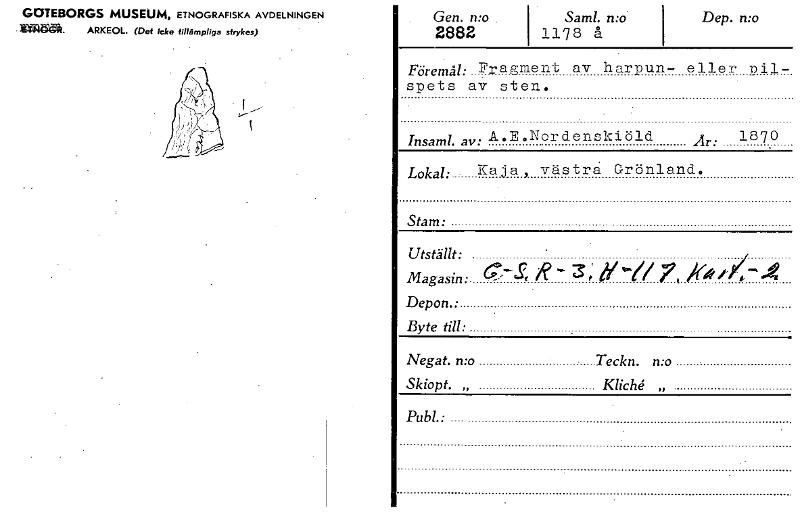 GÖTEBORGS MUSEUM, ETNOGRAFISKA AVDELNINGEN
ETNOGR. ARKEOL. (Det icke tillämpliga strykes)
1/1
Gen. n:o Saml. n:o Dep. n:o
2882 1178 å
Föremål: Fragment av harpun- eller pil-
spets av sten.
Insaml. av: A.E.Nordenskiöld År: 1870
Lokal: Kaja, västra Grönland.
Stam:
Utställt:
Magasin: G-S. R-3. H-117. Kart.-2.
Depon.:
Byte till:
Negat. n:o Teckn. n:o
Skiopt. „ Kliché „
Publ.: